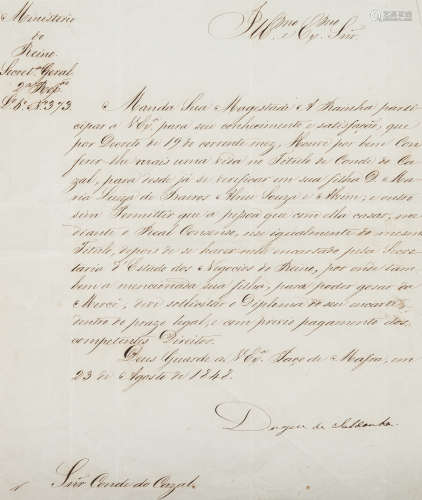 Ministerio
do
Reino.
Secret.ª Geral
2ª Rep.ªm
L.º 6.º Nº 373
Illmo e Exmo Snr.
Manda Sua Magestade A Rainha parti-
cipar a V Ex.ª para seu conhecimento e satisfação, que
por Decreto de 19 do corrente mez, Houve por bem Con-
ferir-lhe mais uma vida no Titulo de Conde do
Cazal, para desde já se verificar em sua filha D. Ma-
ria Luiza de Barros Abreu Souza e Alvim; e outro
sim Permittir que a pessoa que com ella casar, me-
diante o Real Consenso, use igualmente do mesmo
Titulo, depois de se haver nelle encartado pela Secre-
taria d'Estado dos Negocios do Reino, por onde tam-
bem a mencionada sua filha, para poder gosar da
Mercê, deve sollicitar o Diploma do seu encarte
dentro do prazo legal, e com previo pagamento dos
competentes Direitos.
Deus Guarde a V Ex.ª Paço de Mafra, em
23 de Agosto de 1848.
Duque de Saldanha.
Snr Conde do Cazal.